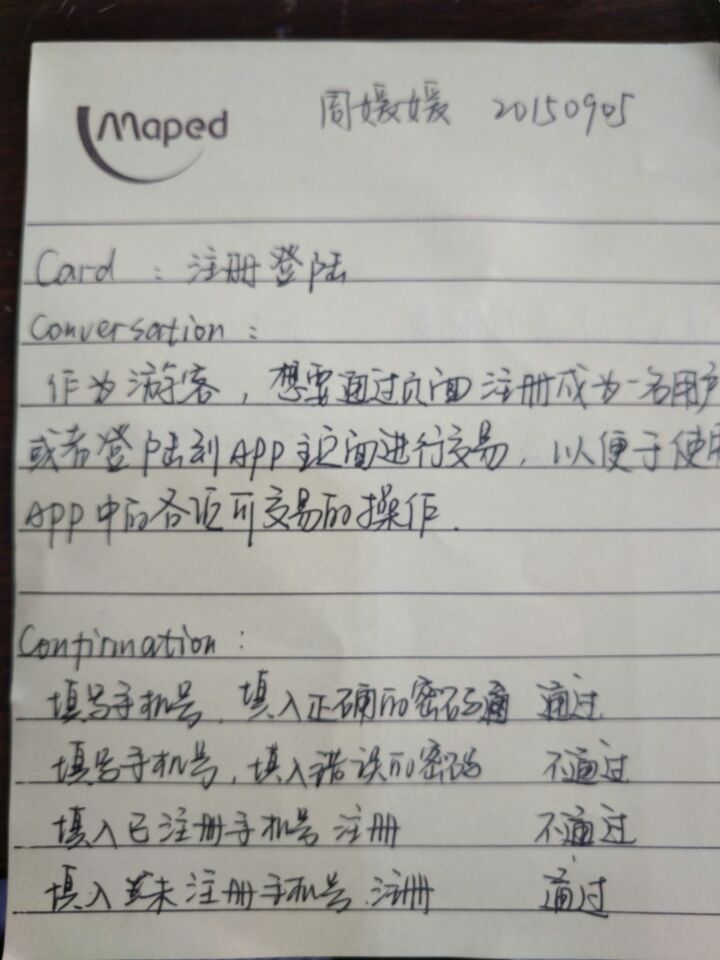 Maped
周媛媛 20150905
Card : 注册登陆
Conversation :
作为游客，想要通过页面注册成为一名用户
或者登陆到APP主页面进行交易，以便于使用
APP中的各项可交易的操作.
Confirmation :
填写手机号，填入正确的密码 通过
填写手机号，填入错误的密码 不通过
填入已注册手机号 注册 不通过
填入未注册手机号.注册 通过